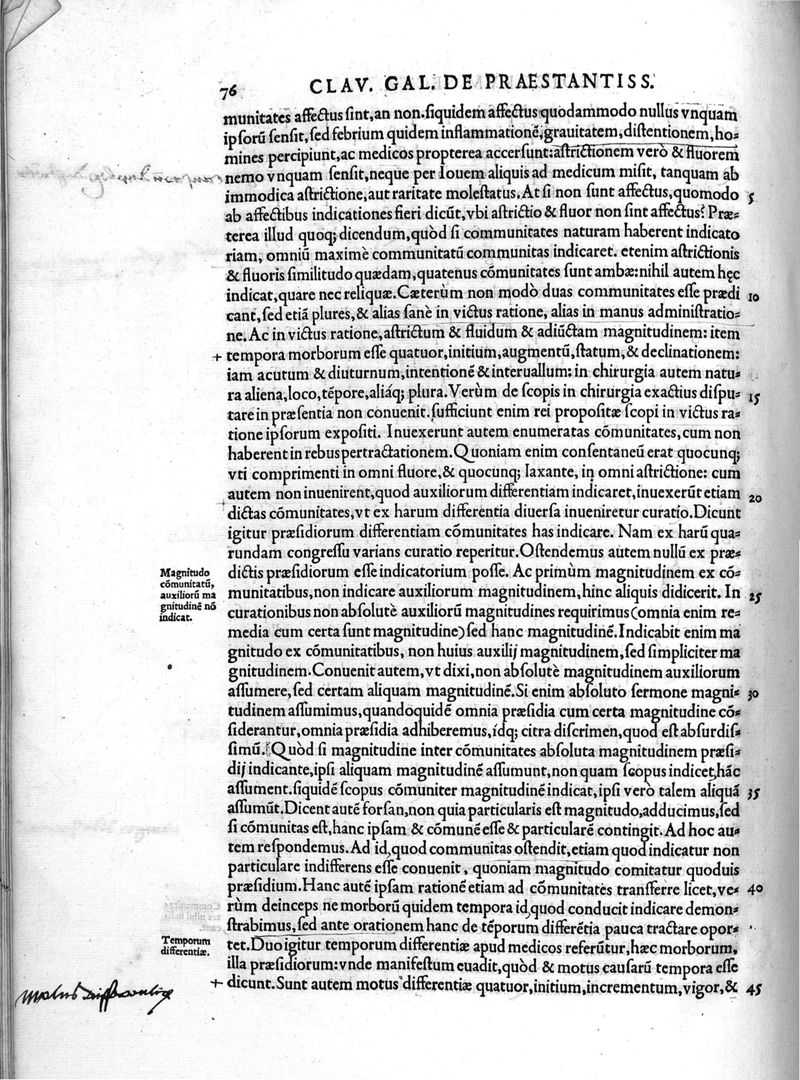 76 CLAV. GAL. DE PRAESTANTISS.
munitates affectus sint, an non. siquidem affectus quodammodo nullus vnquam
ipsorũ sensit, sed febrium quidem inflammationẽ, grauitatem, distentionem, ho⸗
mines percipiunt, ac medicos propterea accersunt: astrictionem verò & fluorem
nemo vnquam sensit, neque per Iouem aliquis ad medicum misit, tanquam ab
immodica astrictione, aut raritate molestatus. At si non sunt affectus, quomodo 5
ab affectibus indicationes fieri dicũt, vbi astrictio & fluor non sint affectus? Præ⸗
terea illud quoq; dicendum, quòd si communitates naturam haberent indicato
riam, omniũ maximè communitatũ communitas indicaret. etenim astrictionis
& fluoris similitudo quædam, quatenus cõmunitates sunt ambæ: nihil autem hęc
indicat, quare nec reliquæ. Cæterùm non modò duas communitates esse prædi 10
cant, sed etiã plures, & alias sanè in victus ratione, alias in manus administratio⸗
ne. Ac in victus ratione, astrictum & fluidum & adiũctam magnitudinem: item
+ tempora morborum esse quatuor, initium, augmentũ, statum, & declinationem:
iam acutum & diuturnum, intentionẽ & interuallum: in chirurgia autem natu⸗
ra aliena, loco, tẽpore, aliáq; plura. Verùm de scopis in chirurgia exactius dispu⸗ 15
tare in præsentia non conuenit. sufficiunt enim rei propositæ scopi in victus ra⸗
tione ipsorum expositi. Inuexerunt autem enumeratas cõmunitates, cum non
haberent in rebus pertractationem. Quoniam enim consentaneũ erat quocunq;
vti comprimenti in omni fluore, & quocunq; laxante, in omni astrictione: cum
autem non inuenirent, quod auxiliorum differentiam indicaret, inuexerũt etiam 20
dictas cõmunitates, vt ex harum differentia diuersa inueniretur curatio. Dicunt
igitur præsidiorum differentiam cõmunitates has indicare. Nam ex harũ qua⸗
rundam congressu varians curatio reperitur. Ostendemus autem nullũ ex præ⸗
Magnitudo
cõmunitatũ,
auxiliorũ ma
gnitudinẽ nõ
indicat.
dictis præsidiorum esse indicatorium posse. Ac primùm magnitudinem ex cõ⸗
munitatibus, non indicare auxiliorum magnitudinem, hinc aliquis didicerit. In 25
curationibus non absolutè auxiliorũ magnitudines requirimus (omnia enim re⸗
media cum certa sunt magnitudine) sed hanc magnitudinẽ. Indicabit enim ma
gnitudo ex cõmunitatibus, non huius auxilij magnitudinem, sed simpliciter ma
gnitudinem. Conuenit autem, vt dixi, non absolutè magnitudinem auxiliorum
assumere, sed certam aliquam magnitudinẽ. Si enim absoluto sermone magni⸗ 30
tudinem assumimus, quandoquidẽ omnia præsidia cum certa magnitudine cõ⸗
siderantur, omnia præsidia adhiberemus, idq; citra discrimen, quod est absurdis⸗
simũ. Quòd si magnitudine inter cõmunitates absoluta magnitudinem præsi⸗
dij indicante, ipsi aliquam magnitudinẽ assumunt, non quam scopus indicet, hãc
assument. siquidẽ scopus cõmuniter magnitudinẽ indicat, ipsi verò talem aliquã 35
assumũt. Dicent autẽ forsan, non quia particularis est magnitudo, adducimus, sed
si cõmunitas est, hanc ipsam & cõmunẽ esse & particularẽ contingit. Ad hoc au⸗
tem respondemus. Ad id, quod communitas ostendit, etiam quod indicatur non
particulare indifferens esse conuenit, quoniam magnitudo comitatur quoduis
præsidium. Hanc autẽ ipsam rationẽ etiam ad cõmunitates transferre licet, ve⸗ 40
rùm deinceps ne morborũ quidem tempora id, quod conducit indicare demon⸗
strabimus, sed ante orationem hanc de tẽporum differẽtia pauca tractare opor⸗
Temporum
differentiæ.
tet. Duo igitur temporum differentiæ apud medicos referũtur, hæc morborum,
illa præsidiorum: vnde manifestum euadit, quòd & motus causarũ tempora esse
+ dicunt. Sunt autem motus differentiæ quatuor, initium, incrementum, vigor, & 45
motus differentiæ